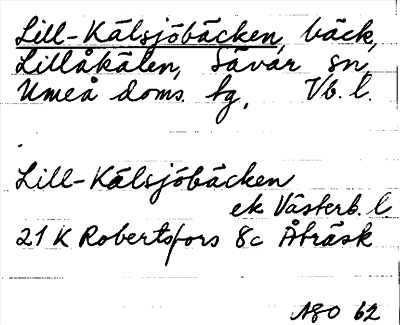 Lill-Kälsjöbäcken, bäck,
Lillåkälen, Sävar sn,
Umeå doms. tg, Vb. l.
Lill-Kälsjöbäcken
ek Västerb. l.
21 K Robertsfors 8c Åträsk
ASO 62